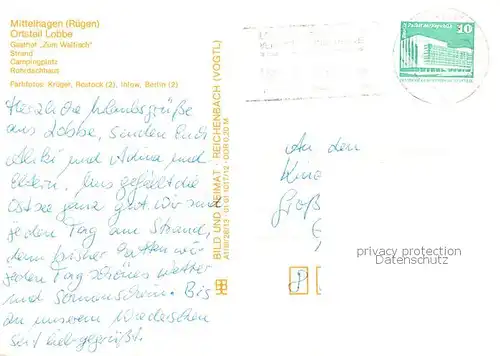 Mittelhagen (Rügen)
Ortsteil Lobbe
Gasthof „Zum Walfisch“
Strand
Campingplatz
Rohrdachhaus
Farbfotos: Krüger, Rostock (2), Infow, Berlin (2)
Herzliche Urlaubsgrüße
aus Lobbe, senden Euch
und Adina und
Eltern. Uns gefällt die
Ostsee ganz gut. Wir sind
jeden Tag am Strand,
denn bisher hatten wir
jeden Tag schönes Wetter
und Sonnenschein. Bis
an unserem Wiedersehen
seit lieb gegrüßt.
BILD UND HEIMAT · REICHENBACH (VOGTL)
DDR 0,20 M
10
An den
Groß
privacy protection
Datenschutz